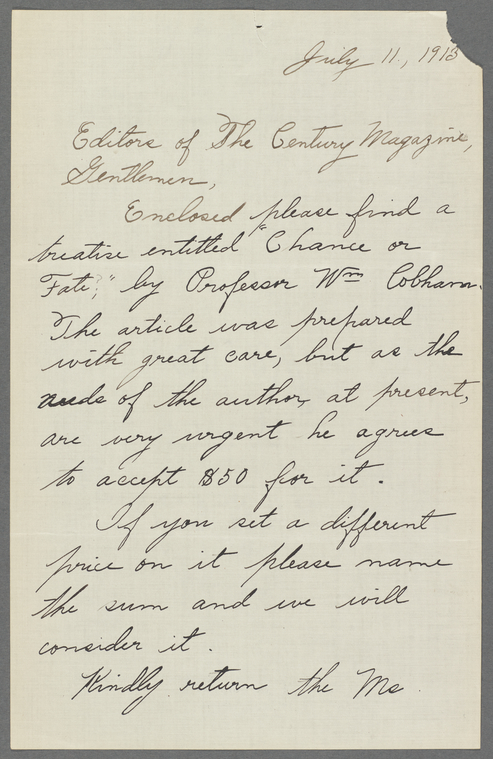 July 11., 1913
Editors of The Century Magazine,
Gentlemen,
Enclosed please find a
treatise entitled "Chance or
Fate," by Professor Wm Cobham.
The article was prepared
with great care, but as the
needs of the author, at present,
are very urgent he agrees
to accept $50 for it.
If you set a different
price on it please name
the sum and we will
consider it.
Kindly return the Ms